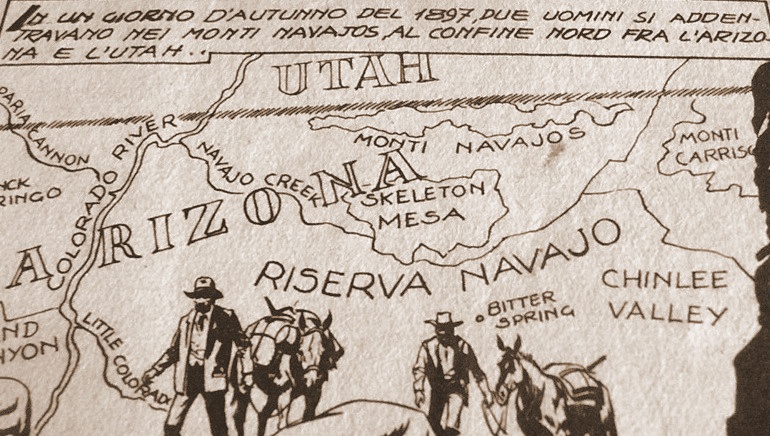 IN UN GIORNO D'AUTUNNO DEL 1897, DUE UOMINI SI ADDEN-
TRAVANO NEI MONTI NAVAJOS, AL CONFINE NORD FRA L'ARIZO-
NA E L'UTAH..
UTAH
PARIA CANNON
COLORADO RIVER
MONTI NAVAJOS
MONTI
CARRISO
NAVAJO CREEK
ARIZONA
SKELETON
MESA
RISERVA NAVAJO
CHINLEE
VALLEY
BITTER
SPRING
LITTLE COLORADO